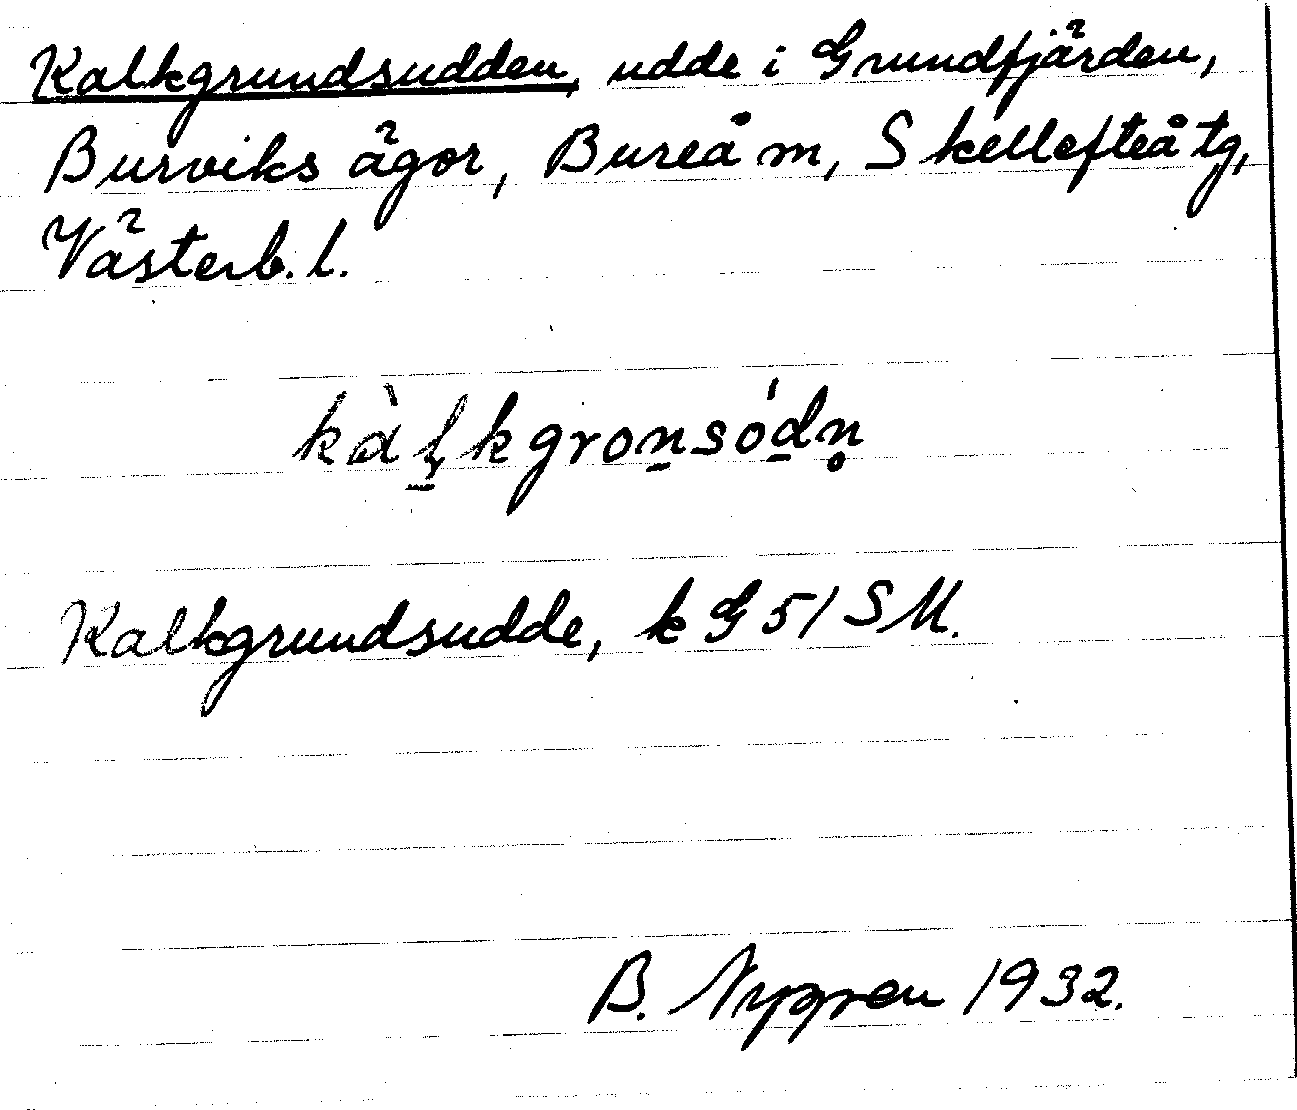 Kalkgrundsudden, udde i Grundfjärden,
Burviks ägor, Bureå m, Skellefteå tg,
Västerb. l.
kàl̠kgron̠sód̠n̥
Kalkgrundsudde, k G 51 SM.
B. Nygren 1932.